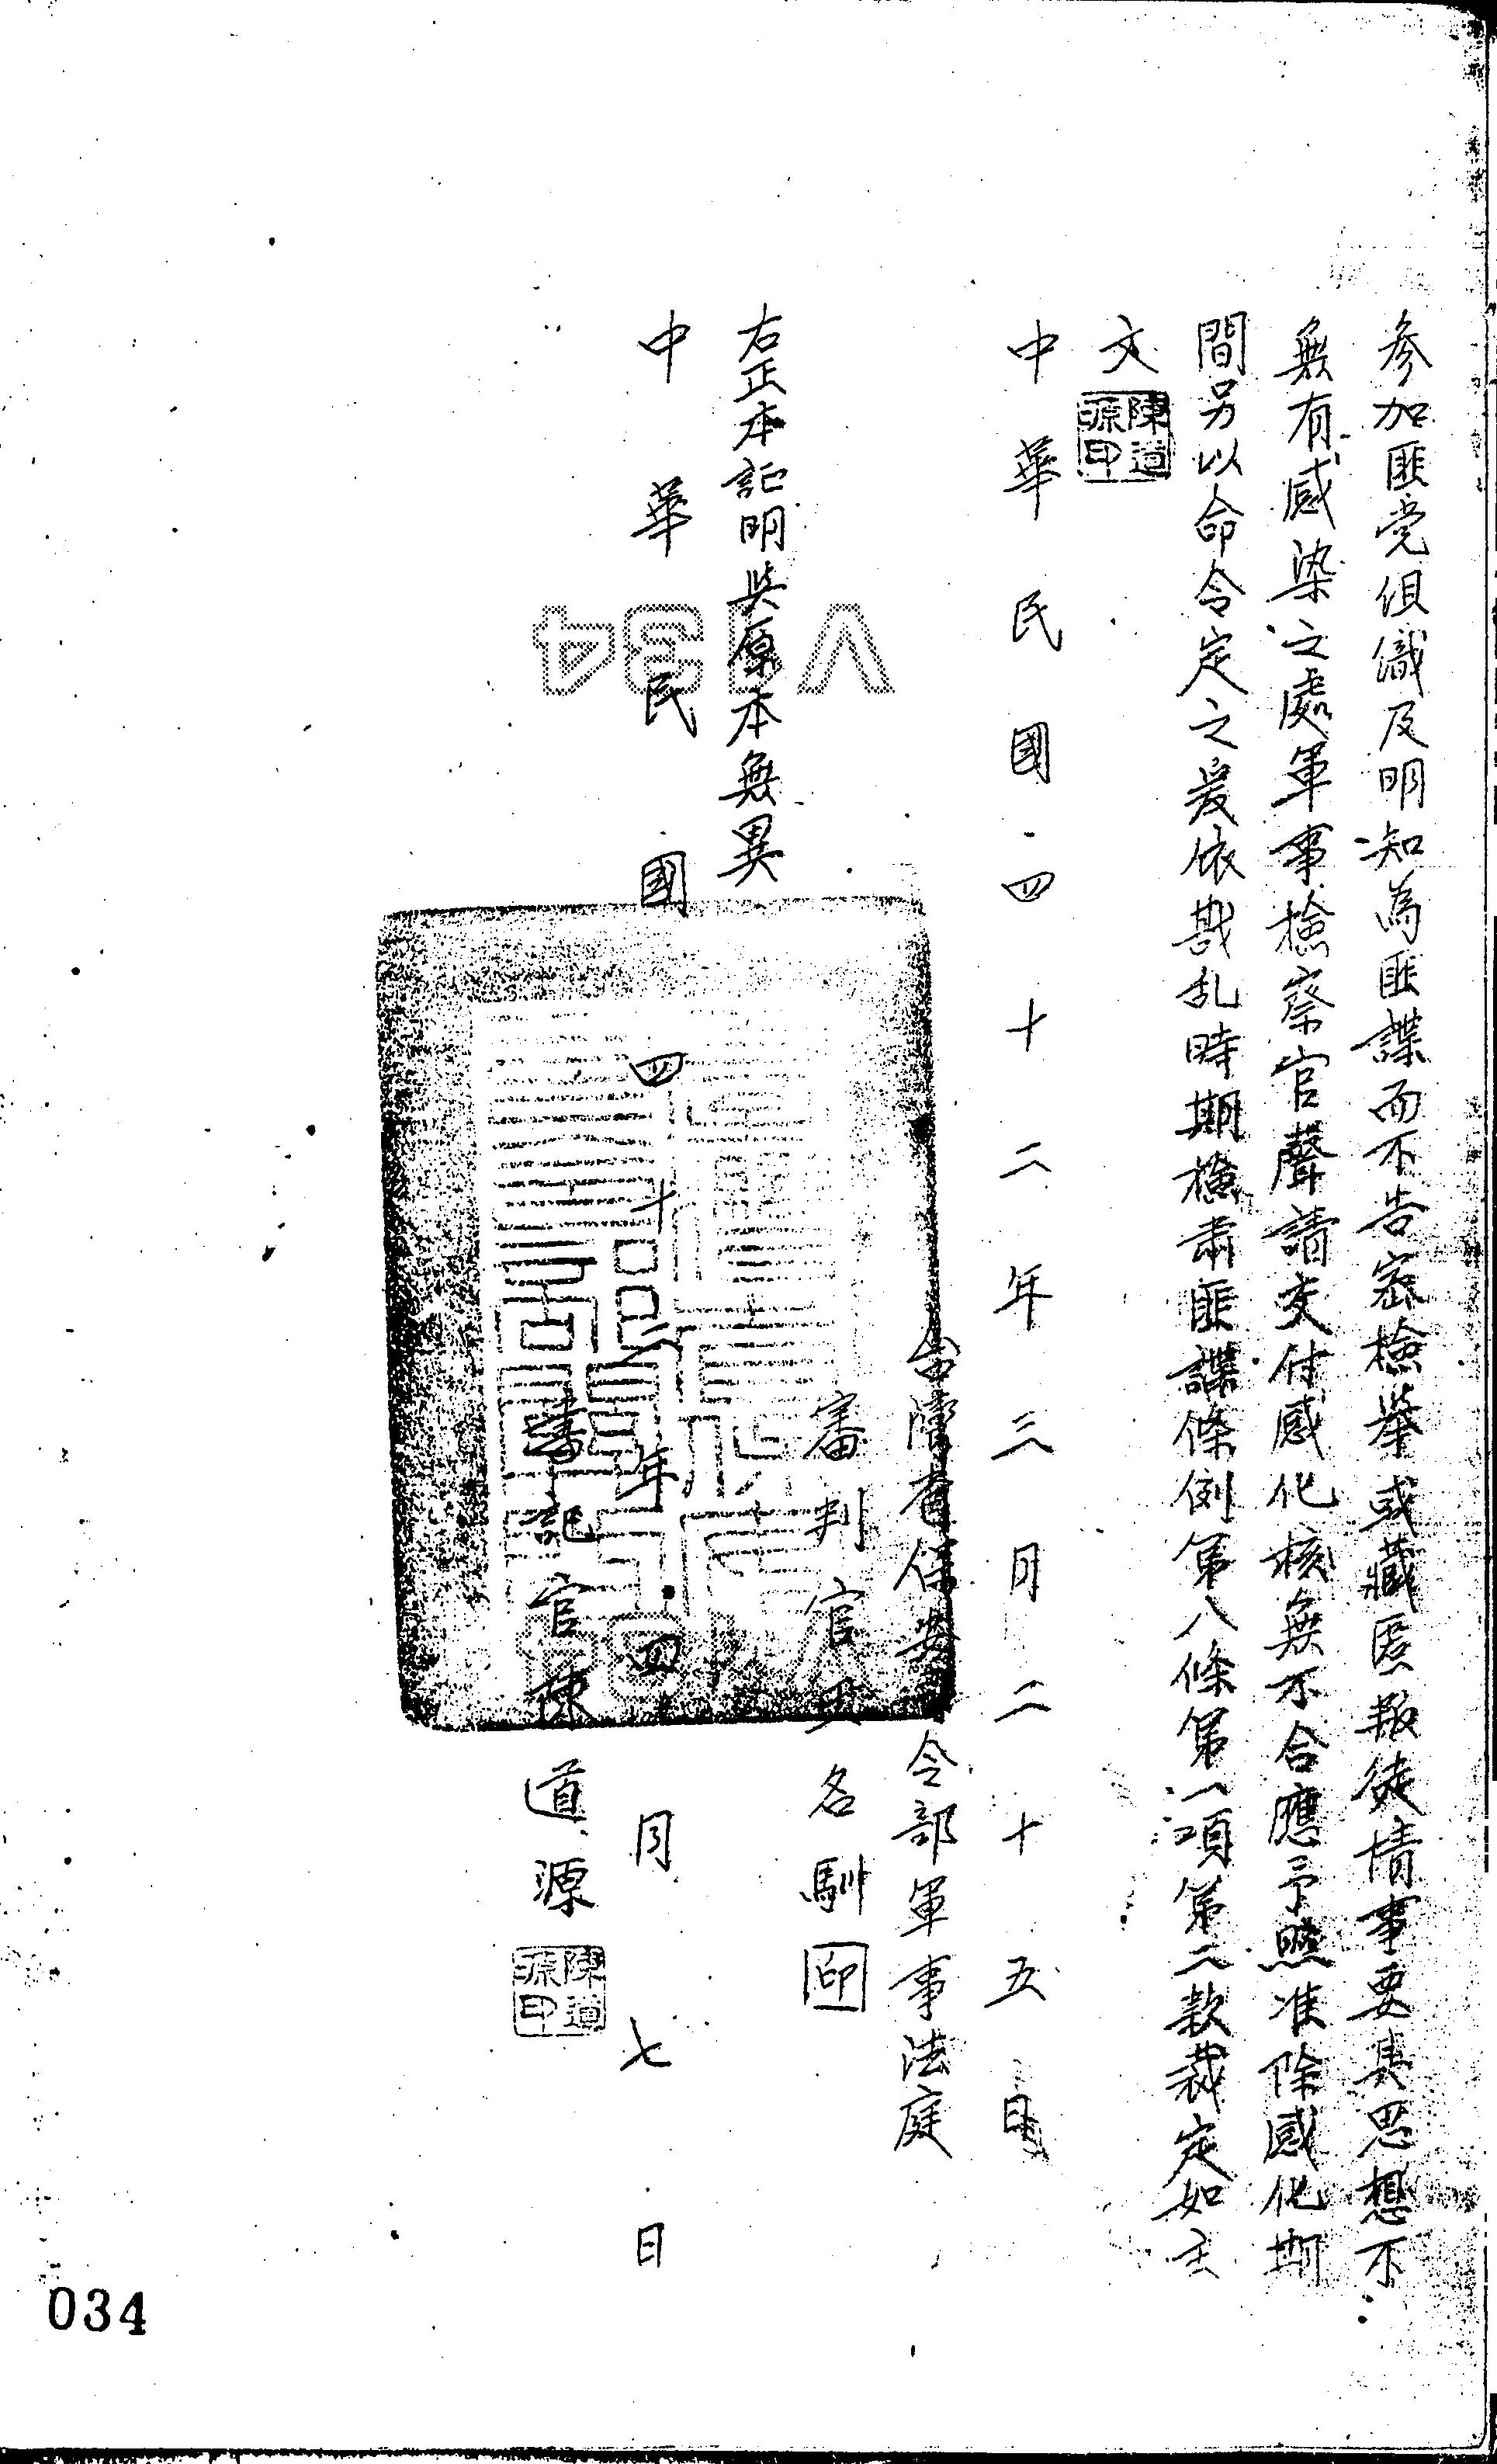 参加匪党组織及明知為匪諜而不告密檢举或藏匿叛徒情事要其思想不
無有感染之處軍事檢察官聲請交付感化核無不合應予照准除感化期
間另以命令定之爰依戡乱時期檢肅匪諜條例第八條第一項第二款裁定如主
文
陳道源印
中華民國四十二年三月二十五日
台灣省保安 令部軍事法庭
審判官 名馴 印
右正本証明與原本無異
中華民國四十二年四月七日
書記官陳道源
陳道源印
V134
V134
034